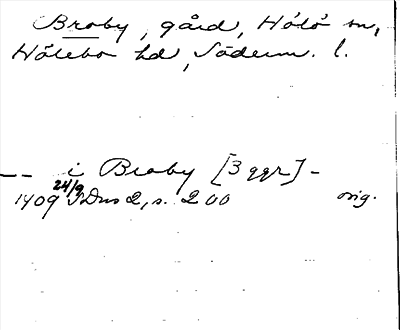 Broby, gård, Hölö sn,
Hölebo hd, Söderm. l.
-- i Broby [3 ggr] -
1409 24/9 SDns 2, s. 200 orig.